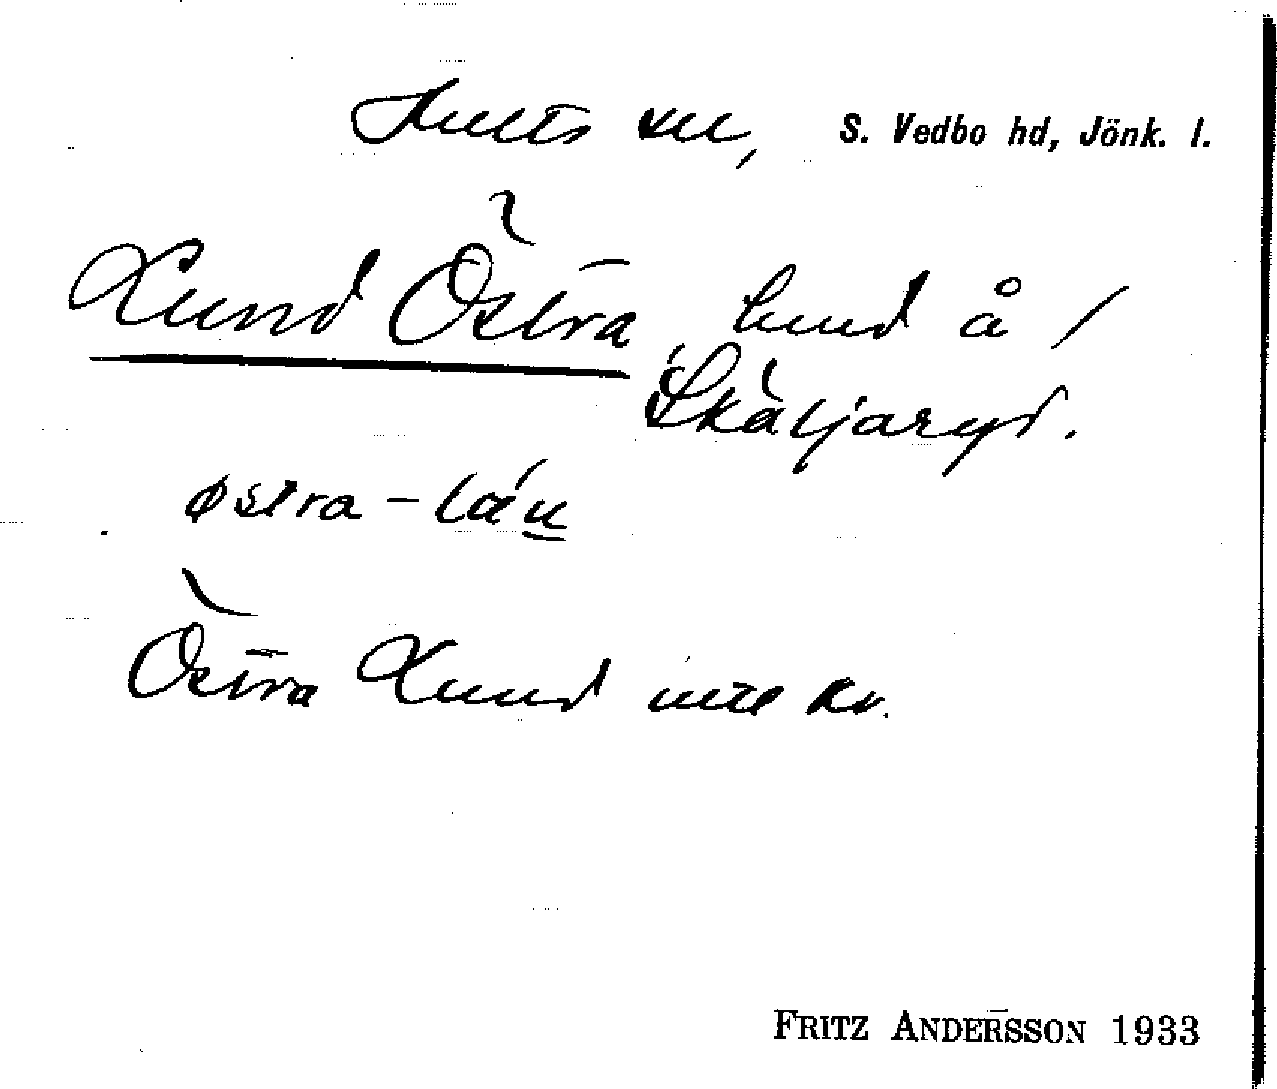 Hults sn, S. Vedbo hd, Jönk. l.
Lund Östra, lund å /
Skäljaryd.
østra - lán
Östra Lund inte kv.
FRITZ ANDERSSON 1933